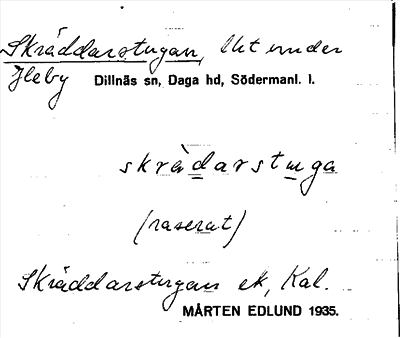 Skräddarstugan, lht under
Jleby Dillnäs sn, Daga hd, Södermanl. l.
skràdarstuga
(raserat)
Skräddarstugan ek, Kal.
MÅRTEN EDLUND 1935.